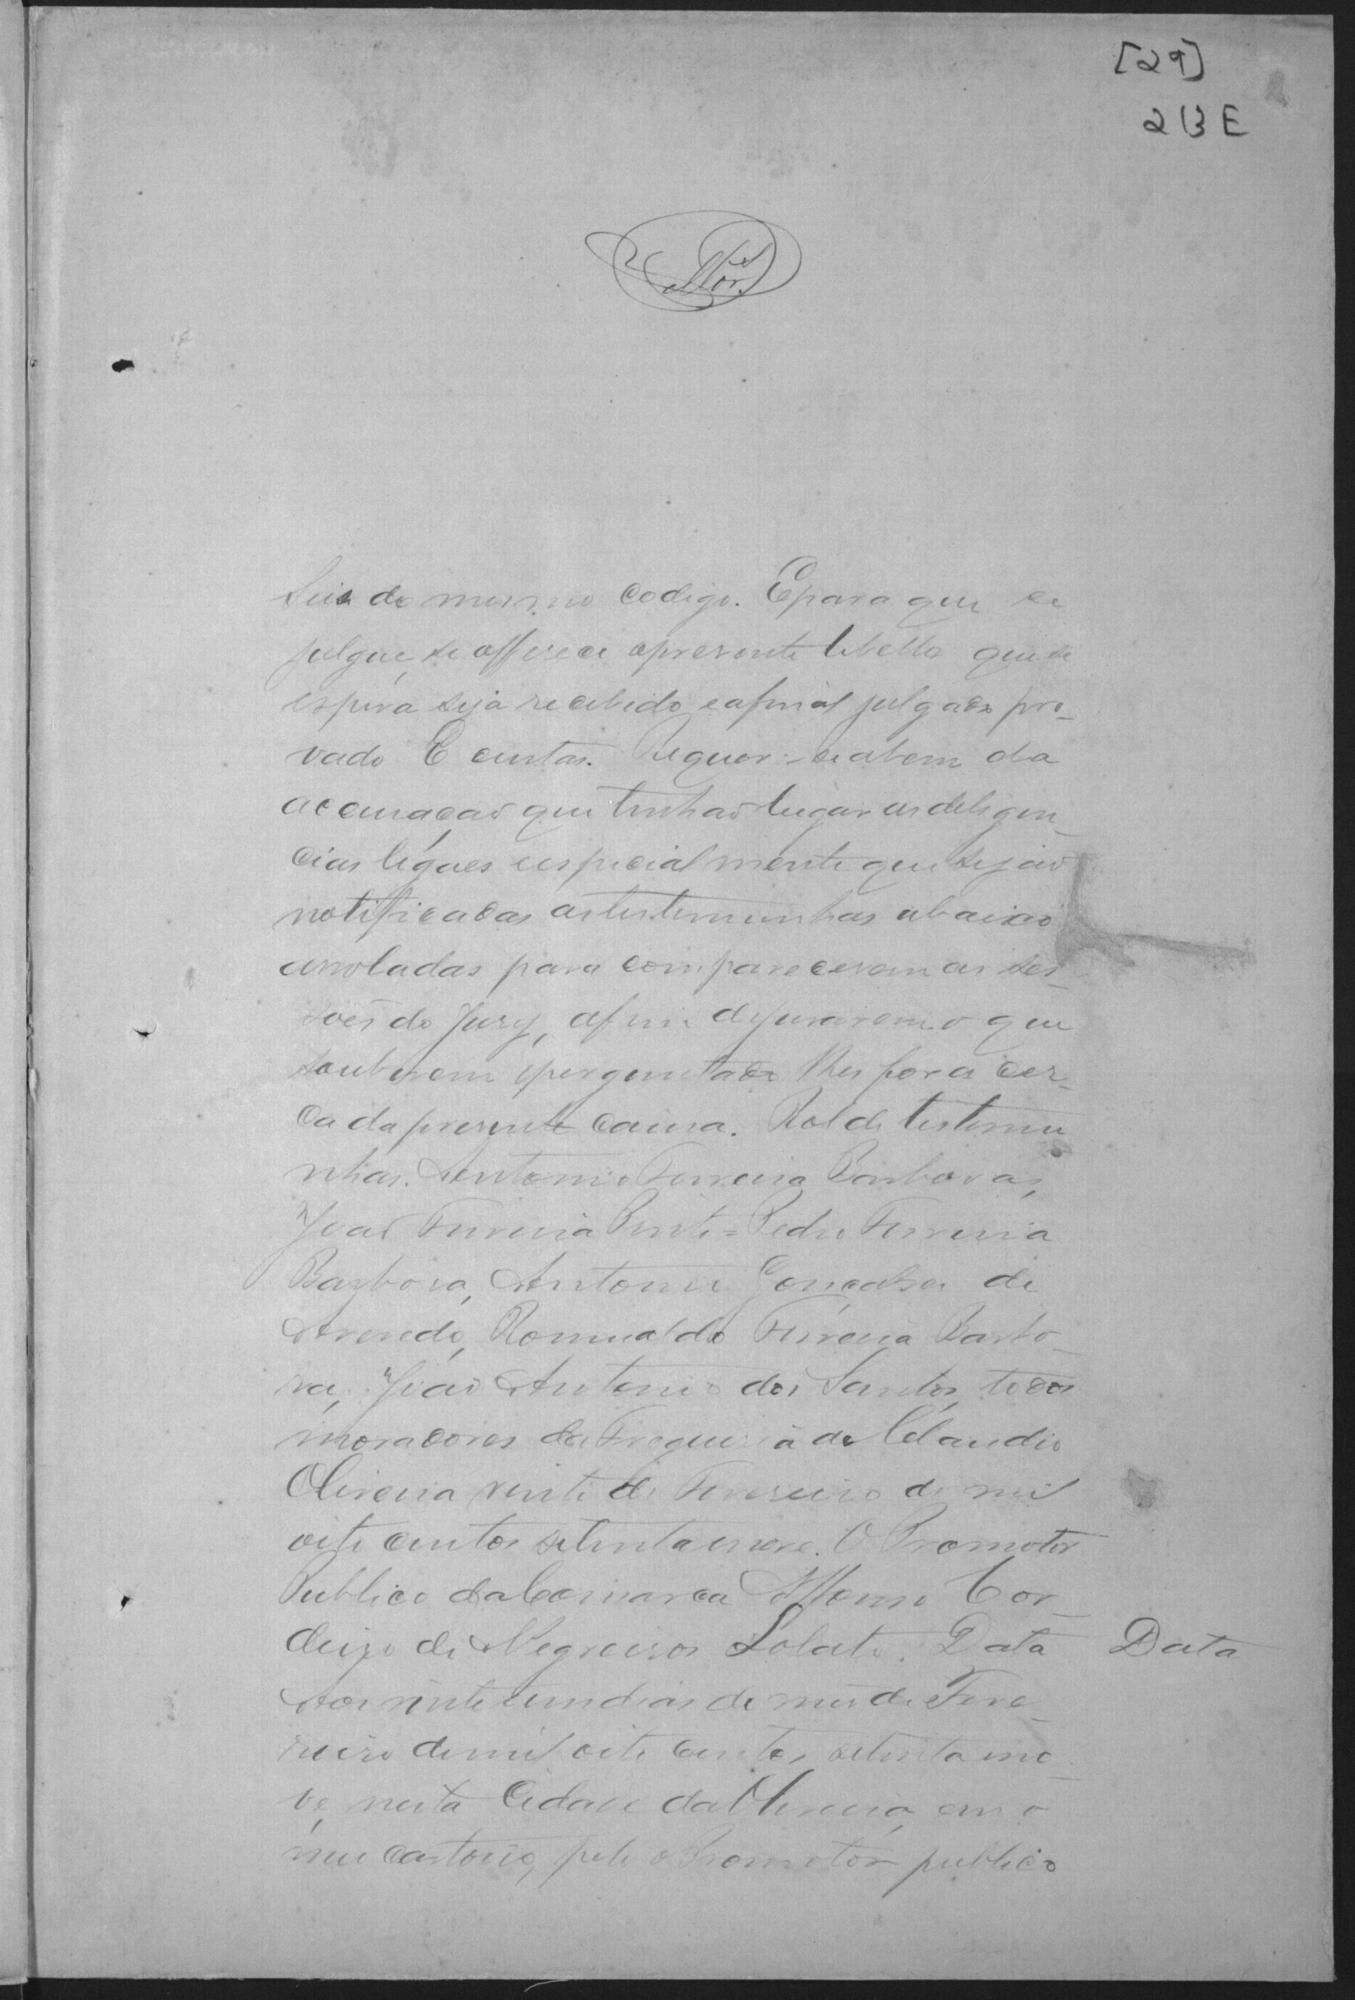 [29]
213 E
Seis do mesmo codigo. E para que se
julgue, se offerece apresente libello que se
espera seja recebido e afinal julgado pro-
vado E custas. Requer-se abem da
accusação que tenhão lugar as deligen-
cias légaes e especialmente que sejão
notificadas as testemunhas abaixo
arroladas para comparecerem as ses-
sões do Jury, afim de jurarem o que
souberem e perguntado lhes for a cer-
ca da presente causa. Rol de testemu
nhas. Antonio Ferreira Barbosa,
João Ferreira Pinto = Pedro Ferreira
Barbosa, Antonio Gonçalves de
Azevedo, Romualdo Ferreira Barbo-
za, João Antonio dos Santos, todos
moradores da Freguesia do Claudio
Oliveira vinte de Fevereiro de mil
oito centos setenta e nove. O Promotor
Publico da Comarca Affonso Cor-
deiro de Negreiros Lobato. Data Data
Aos vinte e um dias do mes de Feve-
reiro de mil oito centos setenta e no-
ve, nesta Cidade da Oliveira, em o
meu cartorio, pelo o Promotor publico